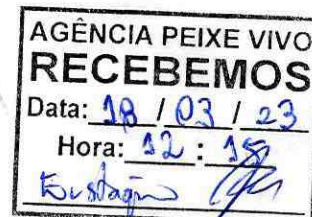 AGÊNCIA PEIXE VIVO
RECEBEMOS
Data: 18 / 03 / 23
Hora: 12 : 15
Eustáquio